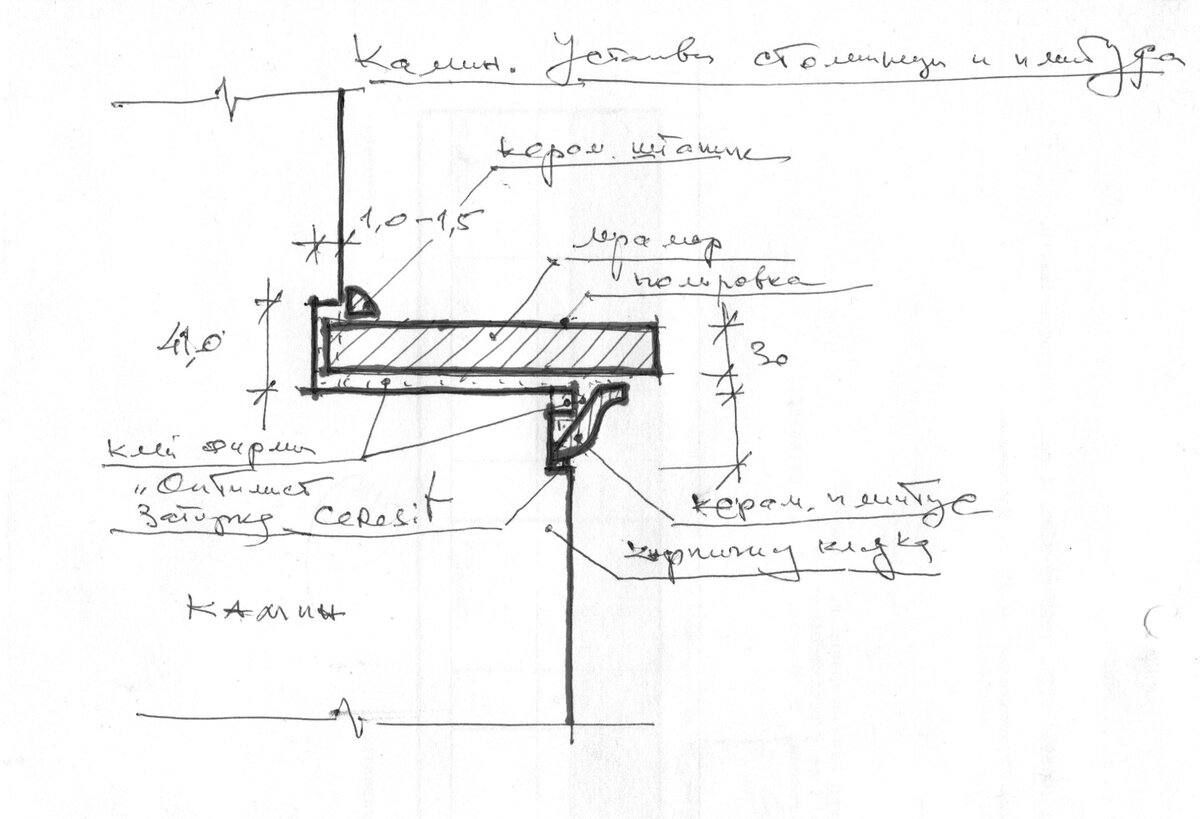 Камин. Установка столешницы и плинтуса
керам. штапик
1,0-1,5
мрамор
полировка
41,0
30
клей фирмы
"Оптимист
Затирка CERESIT
керам. плинтус
кирпичная кладка
КАМИН